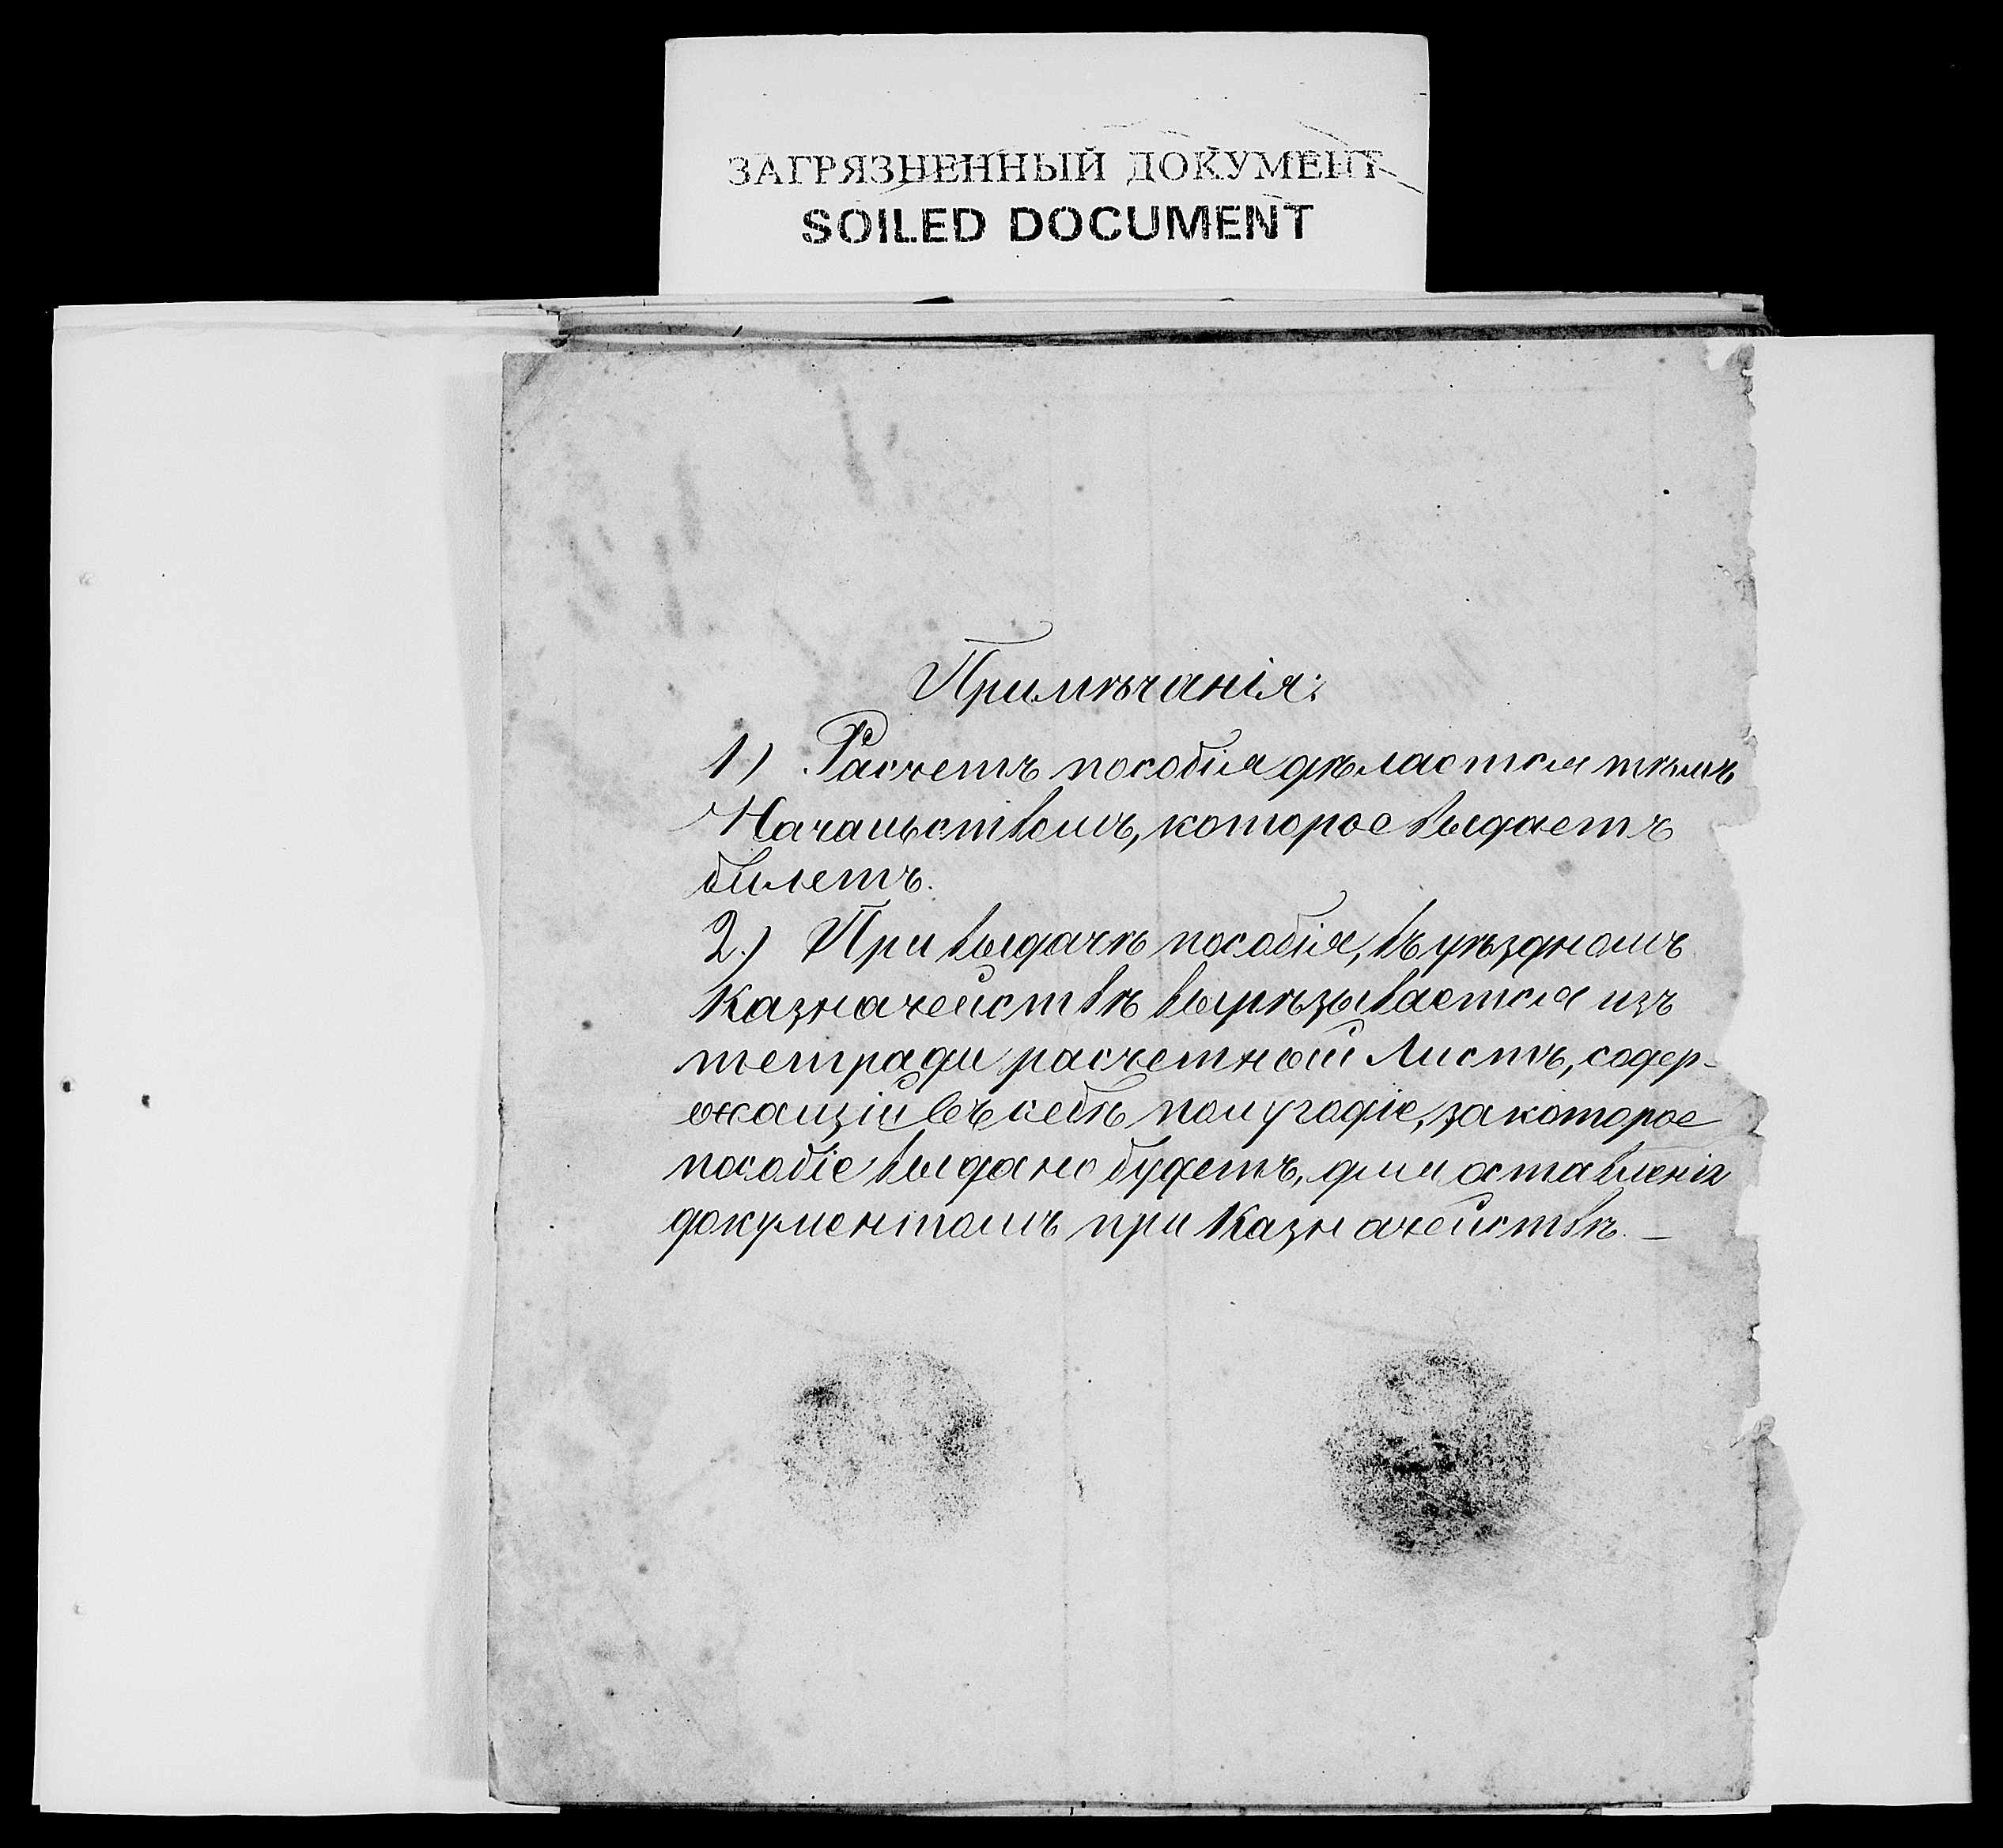 ЗАГРЯЗНЕННЫЙ ДОКУМЕНТ
SOILED DOCUMENT
Примѣчанія:
1) Расчетъ пособія дѣлается тѣмъ
Начальствомъ, которое выдаетъ
билетъ.
2.) При выдачѣ пособія, въ уѣздномъ
Казначействѣ вырѣзывается изъ
тетради расчетный листъ, содер-
жащій въ себѣ полугодіе, за которое
пособіе выдано будетъ, для оставленія
документомъ при Казначействѣ. —